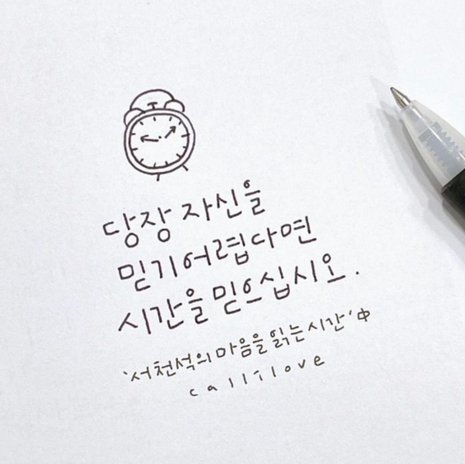 당장 자신을
믿기어렵다면
시간을 믿으십시오.
'서천석의 마음을 읽는 시간' 中
callilove